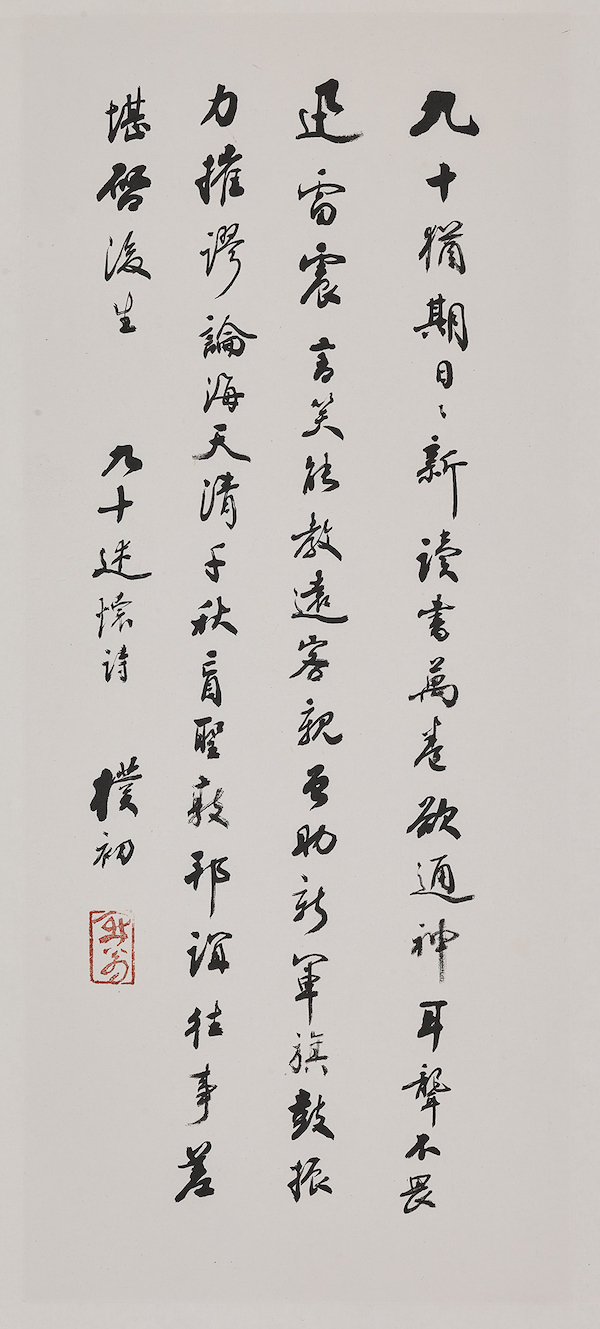 九十猶期日〻新讀書萬卷欲通神耳聾不畏
迅雷震言笑能教遠客親曾助新軍旗鼓振
力摧謬論海天清千秋盲聖敦邦誼往事差
堪啓後生 九十述懷詩 樸初